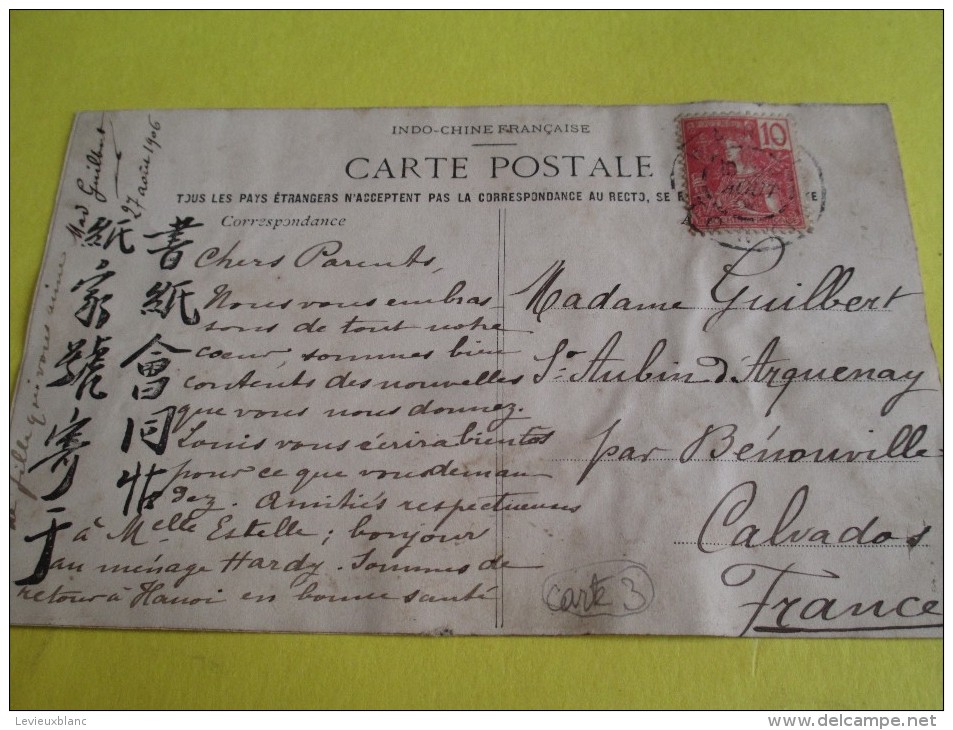 INDO-CHINE FRANÇAISE
CARTE POSTALE
TOUS LES PAYS ÉTRANGERS N'ACCEPTENT PAS LA CORRESPONDANCE AU RECTO, SE
Correspondance
10
Chers Parents,
Nous vous embras
sons de tout notre
coeur, sommes bien
contents des nouvelles
que vous nous donnez.
Louis vous écrira bientôt
pour ce que vous deman
dez. Amitiés respectueuses
à Melle Estelle; bonjour
au ménage Hardy. Sommes de
retour à Hanoi en bonne santé
fille qui vous aime
Guilbert
27 août 1906
書紙會同
紙家號寄于
Madame Guilbert
St Aubin d'Arquenay
par Bénouville
Calvados
France
carte 3
Levieuxblanc
http://www.delcampe.net